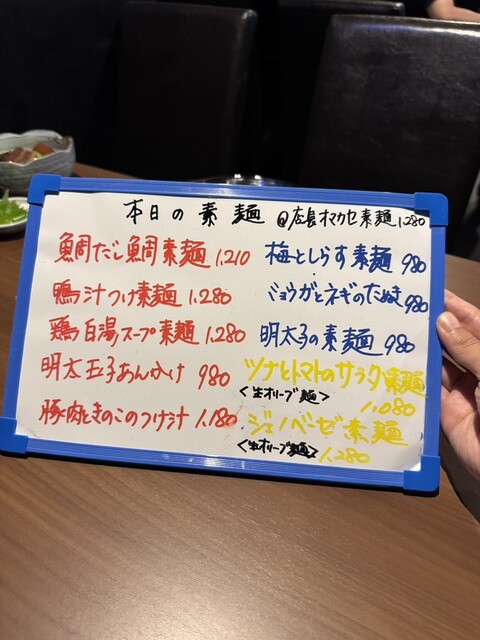 本日の素麺 @店長オマカセ素麺1,280
鯛だし鯛素麺 1,210
鴨汁つけ素麺 1,280
鶏白湯スープ素麺 1,280
明太玉子あんかけ 980
豚肉ときのこのつけ汁 1,180
梅としらす素麺 980
ミョウガとネギのたぬき 980
明太子の素麺 980
ツナとトマトのサラダ素麺
<生オリーブ麺> 1,080
ジェノベーゼ素麺
<生オリーブ麺> 1,280